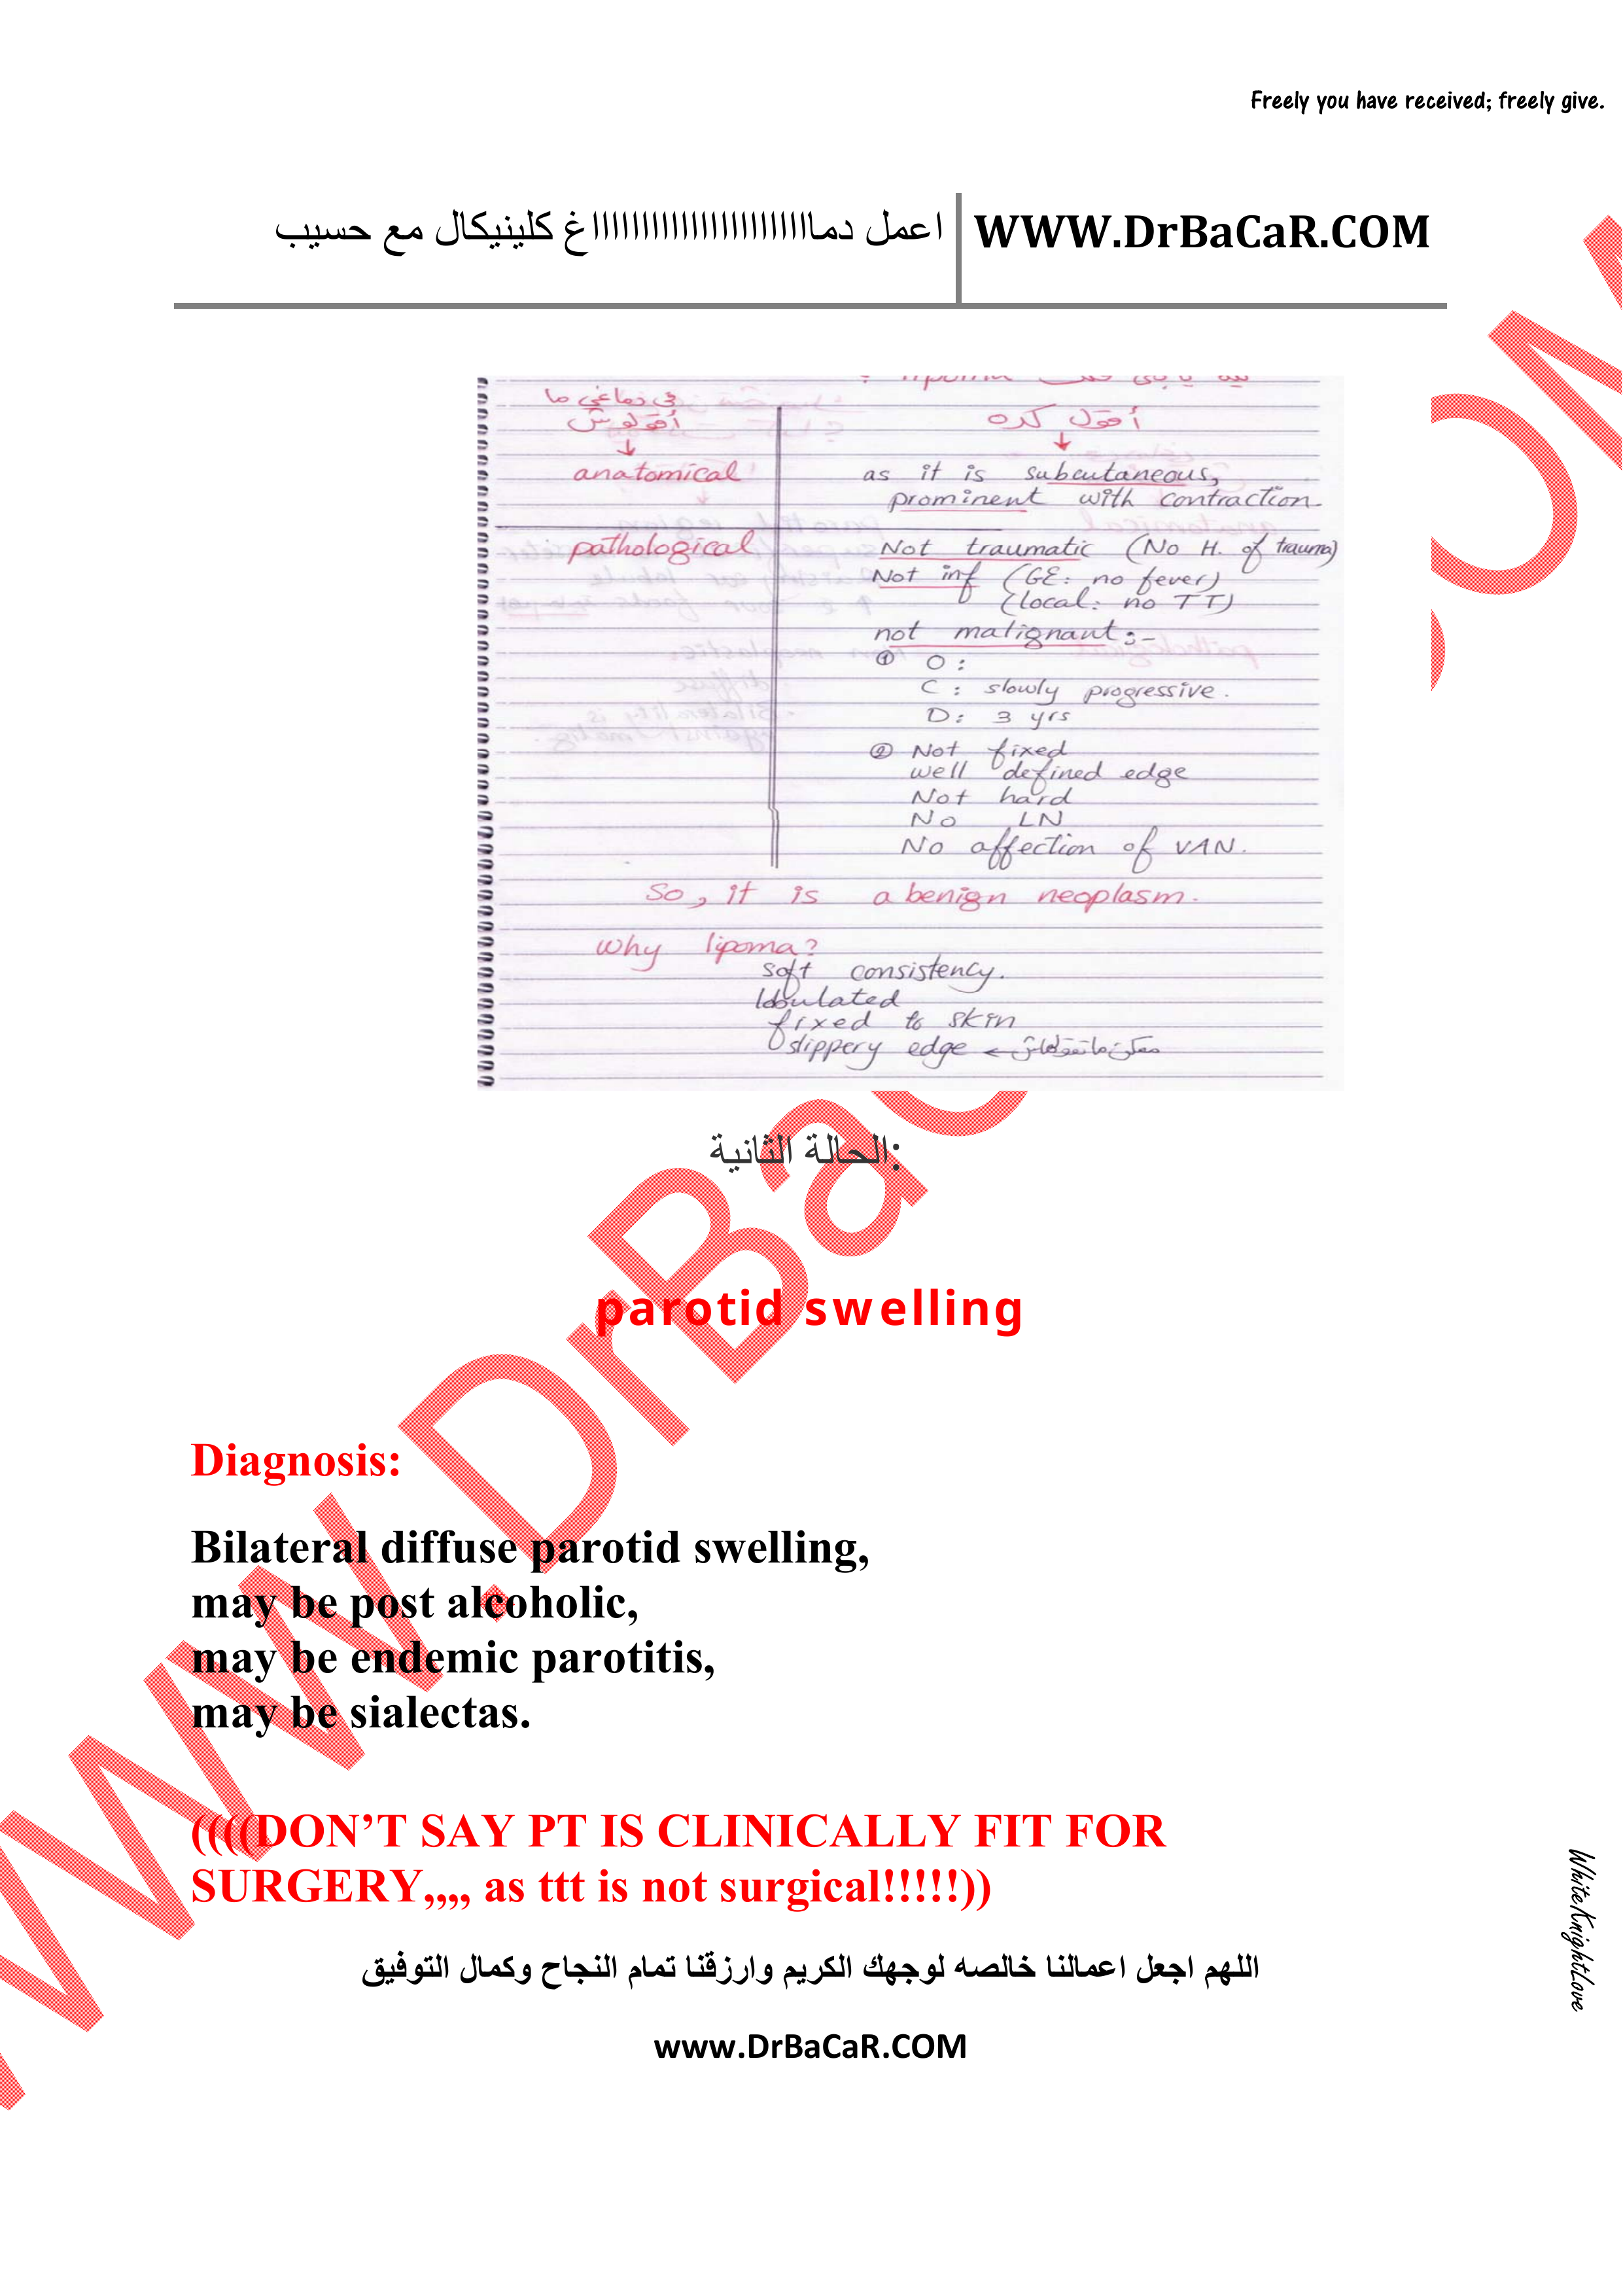 Freely you have received; freely give.
اعمل دمااااااااااااااااااااااغ كلينيكال مع حسيب
WWW.DrBaCaR.COM
ليه يا باى قلت lipoma ?
فى دماغى ما
أقولوش
أقول كده
anatomical
as it is subcutaneous,
prominent with contraction.
pathological
Not traumatic (No H. of trauma)
Not inf (GE: no fever)
(local: no TT)
not malignant:-
① O:
C: slowly progressive.
D: 3 yrs
② Not fixed
well defined edge
Not hard
No LN
No affection of VAN.
So, it is a benign neoplasm.
why lipoma?
soft consistency.
lobulated
fixed to skin
slippery edge ← ممكن ما تقولهاش
الحالة الثانية:
parotid swelling
Diagnosis:
Bilateral diffuse parotid swelling,
may be post alcoholic,
may be endemic parotitis,
may be sialectas.
((((DON'T SAY PT IS CLINICALLY FIT FOR
SURGERY,,,, as ttt is not surgical!!!!!))
اللهم اجعل اعمالنا خالصه لوجهك الكريم وارزقنا تمام النجاح وكمال التوفيق
www.DrBaCaR.COM
WhiteKnightLove
WWW.DrBaCaR.COM